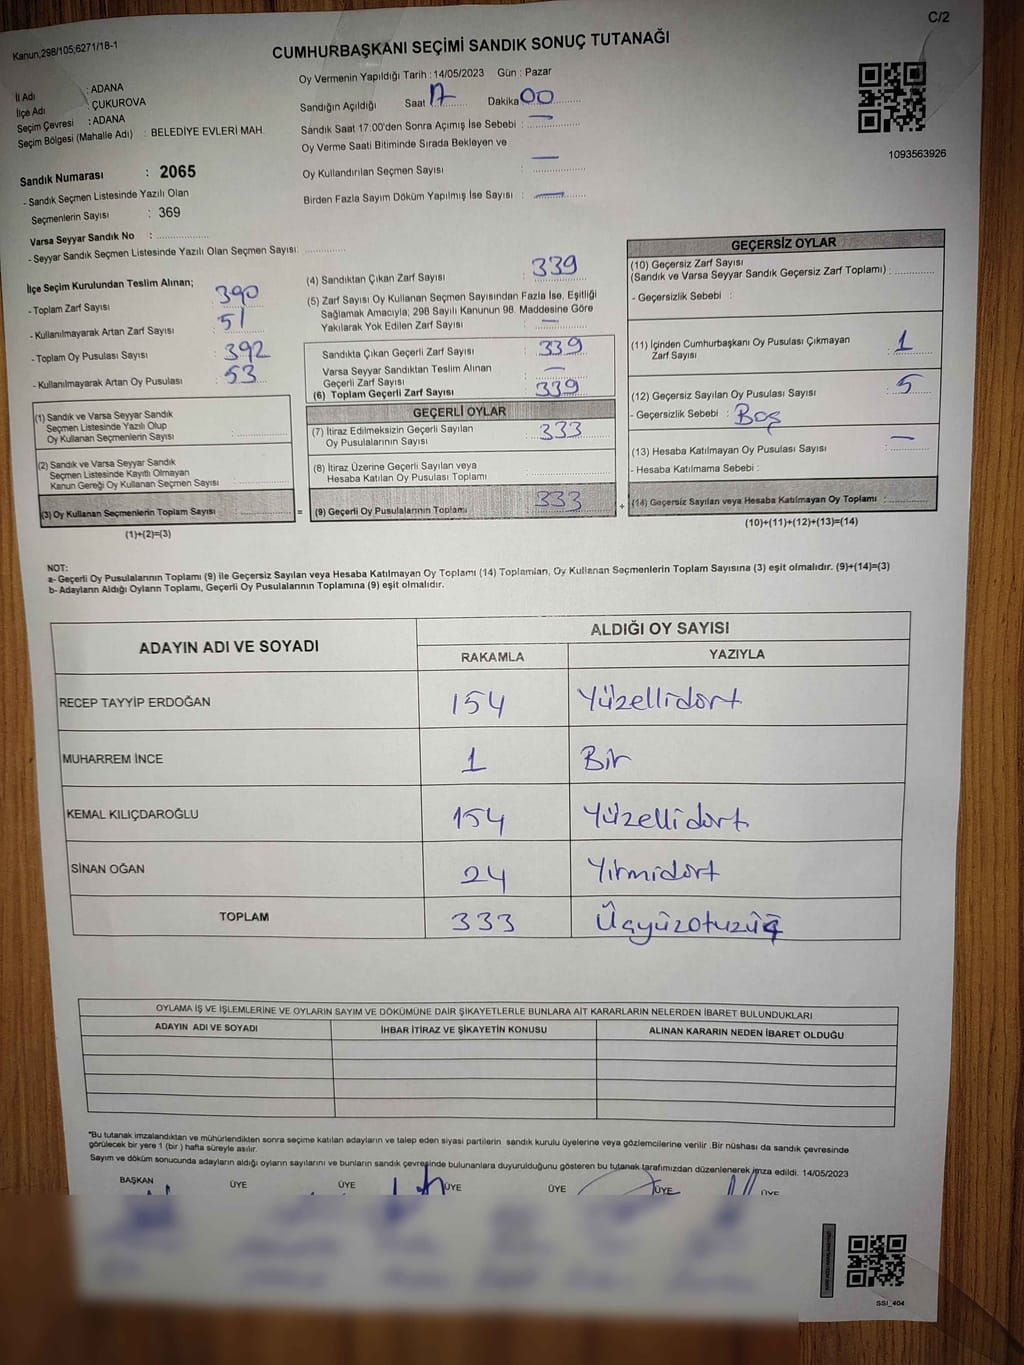 C/2
Kanun;298/105;6271/18-1
CUMHURBAŞKANI SEÇİMİ SANDIK SONUÇ TUTANAĞI
İl Adı : ADANA
İlçe Adı : ÇUKUROVA
Seçim Çevresi : ADANA
Seçim Bölgesi (Mahalle Adı) : BELEDİYE EVLERİ MAH.
Sandık Numarası : 2065
- Sandık Seçmen Listesinde Yazılı Olan
Seçmenlerin Sayısı : 369
Varsa Seyyar Sandık No :
- Seyyar Sandık Seçmen Listesinde Yazılı Olan Seçmen Sayısı:
Oy Vermenin Yapıldığı Tarih : 14/05/2023 Gün : Pazar
Sandığın Açıldığı Saat 17 Dakika 00
Sandık Saat 17:00'den Sonra Açımış İse Sebebi : —
Oy Verme Saati Bitiminde Sırada Bekleyen ve
Oy Kullandırılan Seçmen Sayısı : —
Birden Fazla Sayım Döküm Yapılmış İse Sayısı : —
1093563926
İlçe Seçim Kurulundan Teslim Alınan;
- Toplam Zarf Sayısı : 390
- Kullanılmayarak Artan Zarf Sayısı : 51
- Toplam Oy Pusulası Sayısı : 392
- Kullanılmayarak Artan Oy Pusulası : 53
(1) Sandık ve Varsa Seyyar Sandık
Seçmen Listesinde Yazılı Olup
Oy Kullanan Seçmenlerin Sayısı :
(2) Sandık ve Varsa Seyyar Sandık
Seçmen Listesinde Kayıtlı Olmayan
Kanun Gereği Oy Kullanan Seçmen Sayısı :
(3) Oy Kullanan Seçmenlerin Toplam Sayısı
(1)+(2)=(3)
(4) Sandıktan Çıkan Zarf Sayısı : 339
(5) Zarf Sayısı Oy Kullanan Seçmen Sayısından Fazla İse, Eşitliği
Sağlamak Amacıyla; 298 Sayılı Kanunun 98. Maddesine Göre
Yakılarak Yok Edilen Zarf Sayısı : —
Sandıkta Çıkan Geçerli Zarf Sayısı : 339
Varsa Seyyar Sandıktan Teslim Alınan
Geçerli Zarf Sayısı : —
(6) Toplam Geçerli Zarf Sayısı : 339
GEÇERLİ OYLAR
(7) İtiraz Edilmeksizin Geçerli Sayılan
Oy Pusulalarının Sayısı : 333
(8) İtiraz Üzerine Geçerli Sayılan veya
Hesaba Katılan Oy Pusulası Toplamı :
= (9) Geçerli Oy Pusulalarının Toplamı : 333 +
GEÇERSİZ OYLAR
(10) Geçersiz Zarf Sayısı
(Sandık ve Varsa Seyyar Sandık Geçersiz Zarf Toplamı) :
- Geçersizlik Sebebi :
(11) İçinden Cumhurbaşkanı Oy Pusulası Çıkmayan
Zarf Sayısı : 1
(12) Geçersiz Sayılan Oy Pusulası Sayısı : 5
- Geçersizlik Sebebi : Boş
(13) Hesaba Katılmayan Oy Pusulası Sayısı : —
- Hesaba Katılmama Sebebi :
(14) Geçersiz Sayılan veya Hesaba Katılmayan Oy Toplamı :
(10)+(11)+(12)+(13)=(14)
NOT:
a- Geçerli Oy Pusulalarının Toplamı (9) ile Geçersiz Sayılan veya Hesaba Katılmayan Oy Toplamı (14) Toplamları, Oy Kullanan Seçmenlerin Toplam Sayısına (3) eşit olmalıdır. (9)+(14)=(3)
b- Adayların Aldığı Oyların Toplamı, Geçerli Oy Pusulalarının Toplamına (9) eşit olmalıdır.
ADAYIN ADI VE SOYADI ALDIĞI OY SAYISI
RAKAMLA YAZIYLA
RECEP TAYYİP ERDOĞAN 154 Yüzellidört
MUHARREM İNCE 1 Bir
KEMAL KILIÇDAROĞLU 154 Yüzellidört
SİNAN OĞAN 24 Yirmidört
TOPLAM 333 Üçyüzotuzüç
OYLAMA İŞ VE İŞLEMLERİNE VE OYLARIN SAYIM VE DÖKÜMÜNE DAİR ŞİKAYETLERLE BUNLARA AİT KARARLARIN NELERDEN İBARET BULUNDUKLARI
ADAYIN ADI VE SOYADI İHBAR İTİRAZ VE ŞİKAYETİN KONUSU ALINAN KARARIN NEDEN İBARET OLDUĞU
"Bu tutanak imzalandıktan ve mühürlendikten sonra seçime katılan adayların ve talep eden siyasi partilerin sandık kurulu üyelerine veya gözlemcilerine verilir .Bir nüshası da sandık çevresinde
görülecek bir yere 1 (bir ) hafta süreyle asılır.
Sayım ve döküm sonucunda adayların aldığı oyların sayılarını ve bunların sandık çevresinde bulunanlara duyurulduğunu gösteren bu tutanak tarafımızdan düzenlenerek imza edildi. 14/05/2023
BAŞKAN ÜYE ÜYE ÜYE ÜYE ÜYE ÜYE
SSI_404